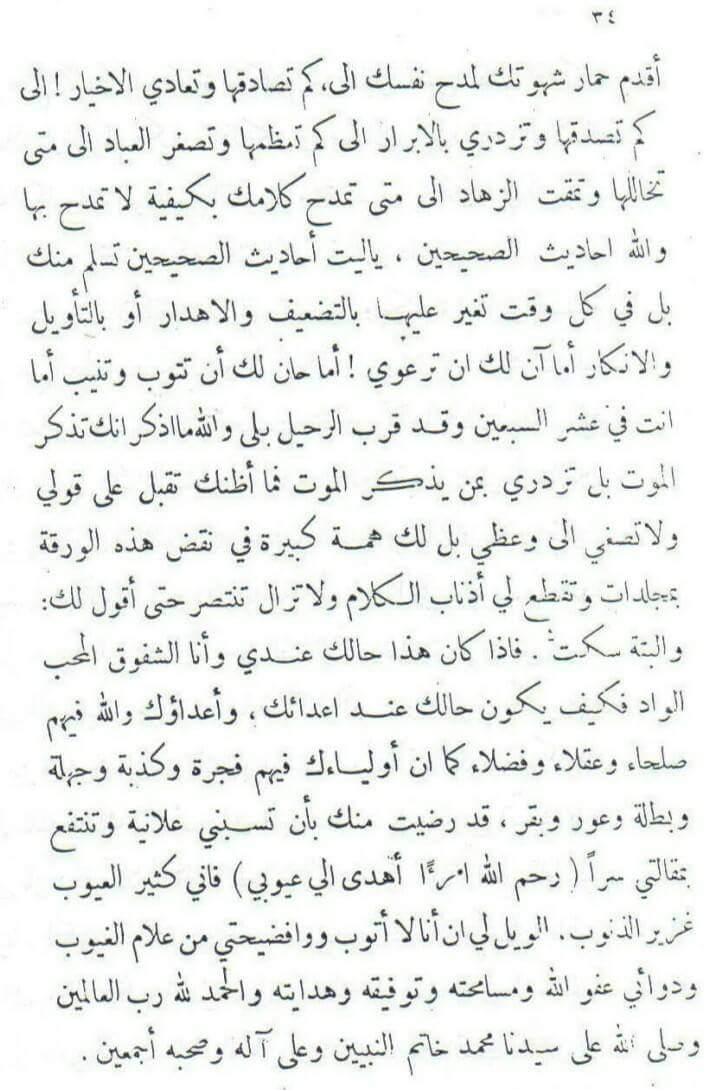 ٣٤
أقدم حمار شهوتك لمدح نفسك الى، كم تصادقها وتعادي الاخيار! الى
كم تصدقها وتزدري بالابرار الى كم تمظمها وتصغر العباد الى متى
تخاللها وتمقت الزهاد الى متى تمدح كلامك بكيفية لا تمدح بها
والله احاديث الصحيحين ، ياليت أحاديث الصحيحين تسلم منك
بل في كل وقت تغير عليها بالتضعيف والاهدار أو بالتأويل
والانكار أما آن لك ان ترعوي! أما حان لك أن تتوب وتنيب أما
انت في عشر السبعين وقد قرب الرحيل بلى والله مااذكر انك تذكر
الموت بل تزدري بمن يذكر الموت فما أظنك تقبل على قولي
ولا تصغي الى وعظي بل لك همة كبيرة في نقض هذه الورقة
بمجلدات وتقطع لي أذناب الكلام ولا تزال تنتصر حتى أقول لك:
والبتة سكت . فاذا كان هذا حالك عندي وأنا الشفوق المحب
الواد فكيف يكون حالك عند اعدائك ، وأعداؤك والله فيهم
صلحاء وعقلاء وفضلاء كما ان أولياءك فيهم فجرة وكذبة وجهلة
وبطلة وعور وبقر ، قد رضيت منك بأن تسبني علانية وتنتفع
بمقالتي سراً ( رحم الله امرءًا أهدى الي عيوبي ) فاني كثير العيوب
غزير الذنوب . الويل لي ان أنا لا أتوب ووافضيحتي من علام الغيوب
ودوائي عفو الله ومسامحته وتوفيقه وهدايته والحمد لله رب العالمين
وصلى الله على سيدنا محمد خاتم النبيين وعلى آله وصحبه أجمعين .